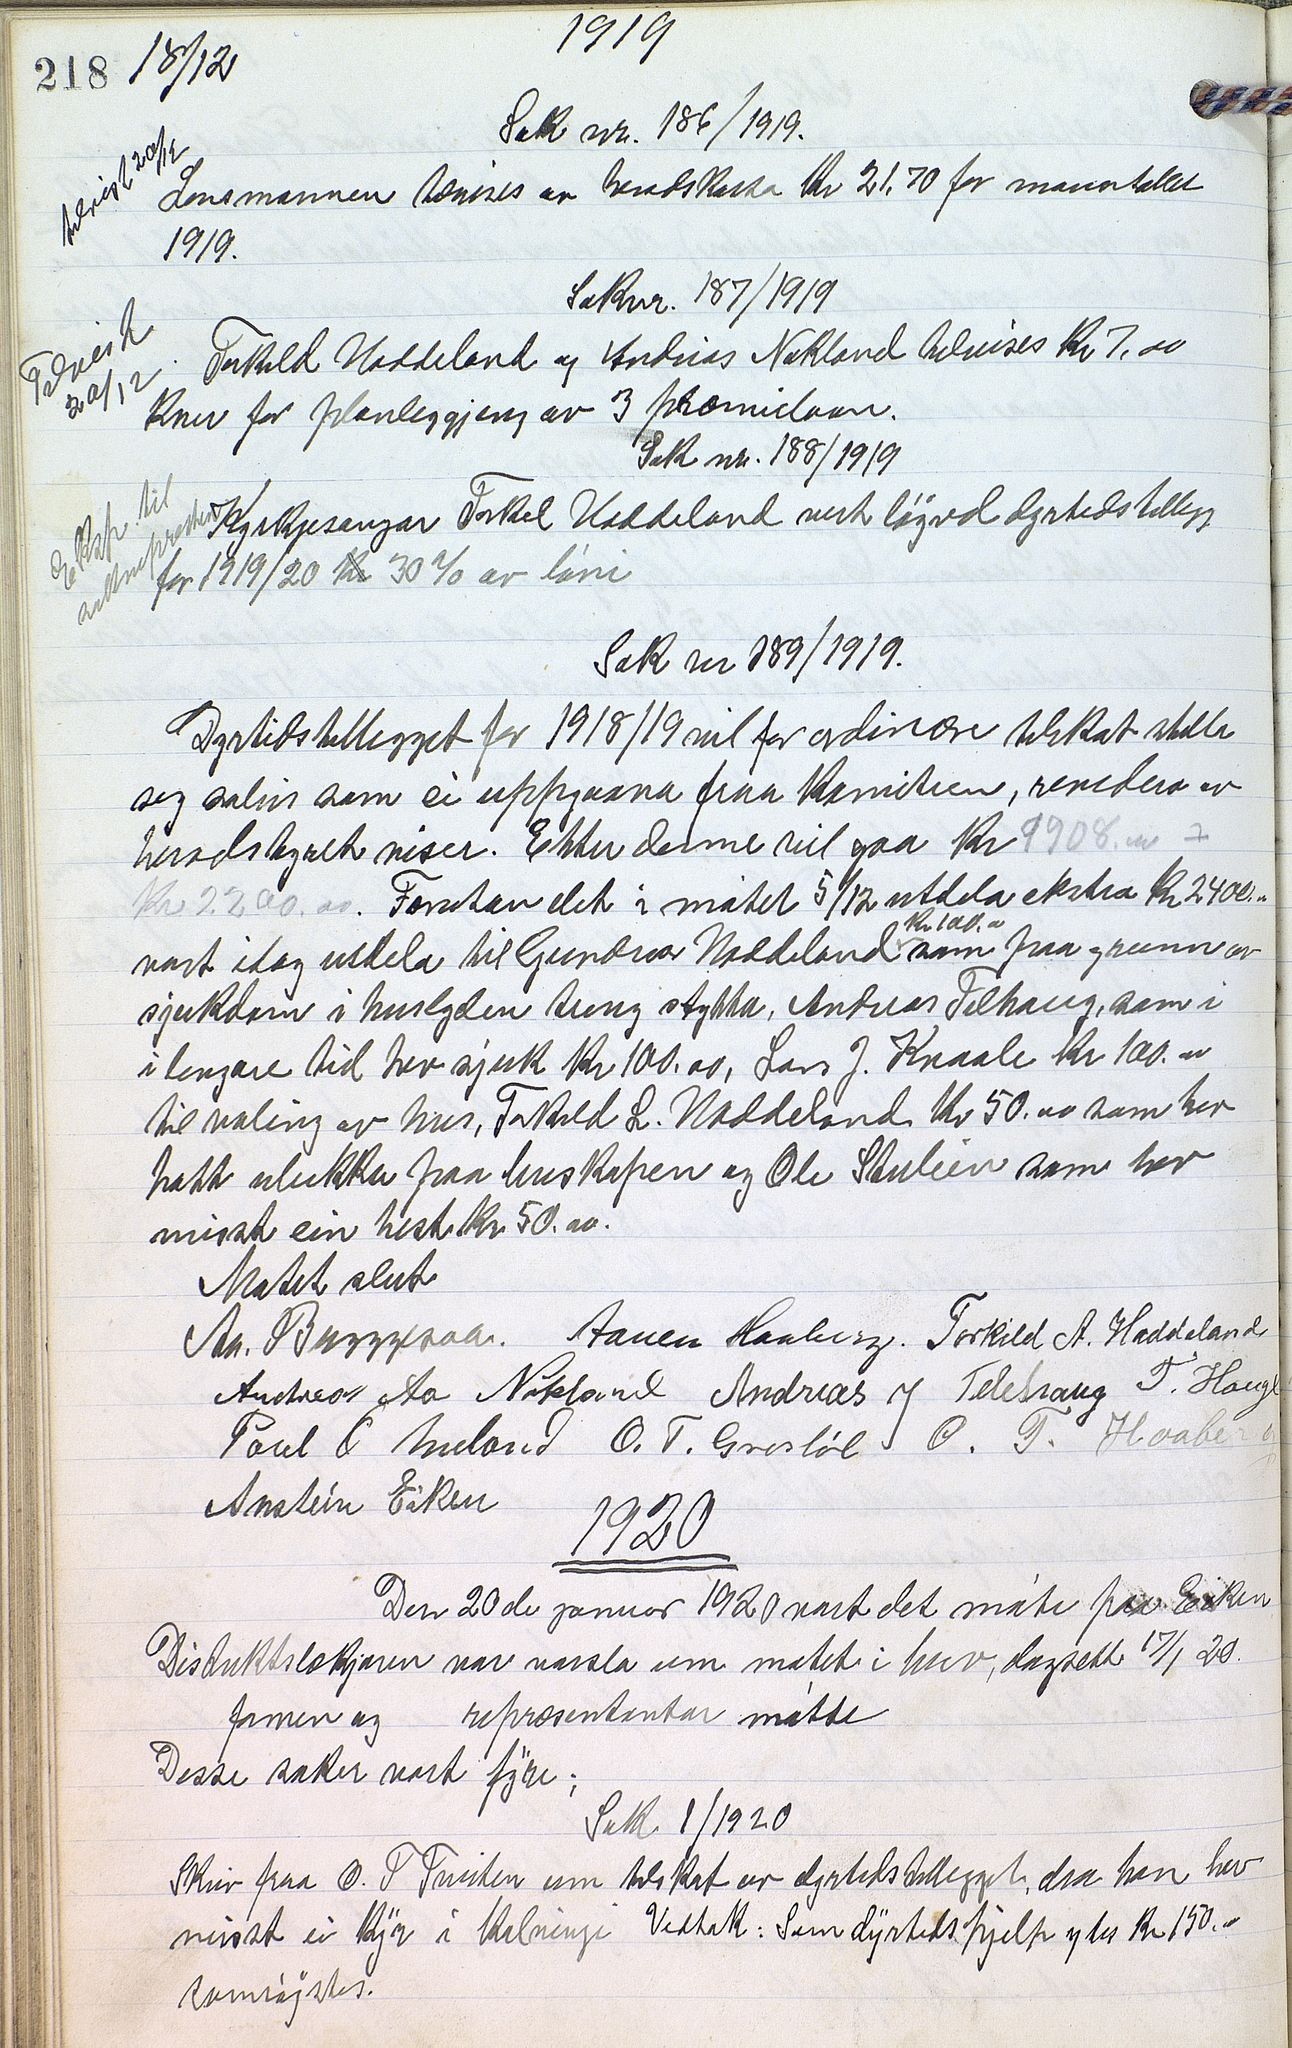 218 18/12 1919
Sak nr. 186/1919.
tilvist 20/12
Lensmannen tilvises av heradskassa Kr 21.70 for manntallet
1919.
Saknr. 187/1919
Tilvist
20/12
Torkild Haddeland og Andreas Nøkland tilvises Kr 7.00
Kver for planleggjing av 3 præmielaan.
Sak nr. 188/1919
Eksp. til
soknepresten
Kyrkjesongar Torkel Haddeland vert løgvd dyrtidstillegg
for 1919/20 Kr 30% av løni
Sak nr 189/1919.
Dyrtidstillegget for 1918/19 vil for ordinære tilskot stella
seg soleis som ei uppgaava fraa Komiteen, revidera av
heradstyret viser. Etter denne vil gaa Kr 9908.00 +
Kr 2200.00. Forutan det i møtet 5/12 utdela ekstra Kr 2400.00
vart idag utdela til Gundvor Haddeland som paa grunn av
Kr 100.00
sjukdom i huslyden treng stytta, Andreas Telhaug, som i
i lengare tid hev sjuk Kr 100.00, Lars J. Knaale Kr 100.00
til vøling av hus, Torkild L. Haddeland Kr 50.00 som hev
hatt ulukka paa huskapen og Ole Stulien som hev
misst ein hest Kr 50.00.
Møtet slut
Aa. Byggesaa. Aanen Haaberg. Torkild A. Haddeland
Andreas Aa Nøkland Andreas J Telehaug T. Haugl
Poul O Meland O. T. Grosløl O. T. Haaberg
Anstein Eiken
1920
Den 20de januar 1920 vart det møte paa Eiken
Distriktslækjaren var varsla um møtet i brev, dagsett 17/1 20.
formen og representantar møtte
Desse saker vart fyre;
Sak 1/1920
Skriv fraa O. T Tveiten um tilskot av dyrtidstillegget, daa han hev
misst ei kyr i kalvingi Vedtak: Som dyrtidshjelp ytes Kr 150.00
samrøystes.